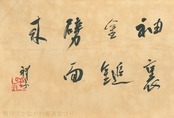 袖裏
金鎚
劈面
来